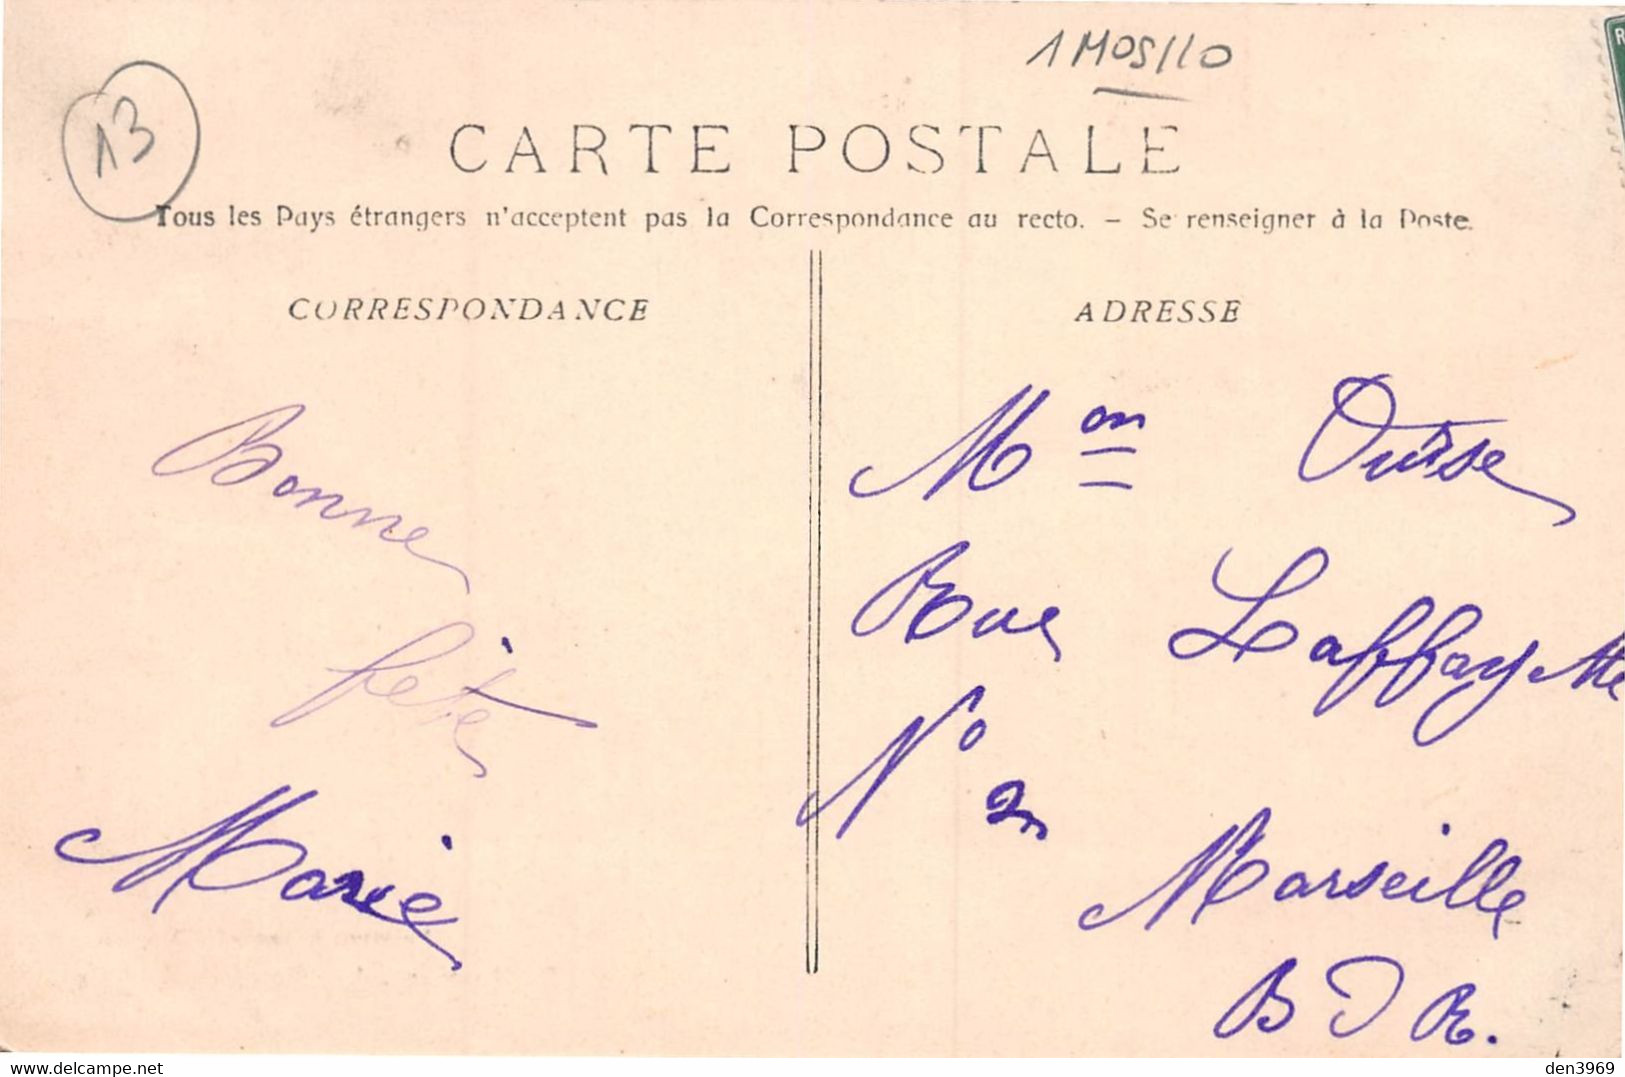 13
1MOS/10
CARTE POSTALE
Tous les Pays étrangers n'acceptent pas la Correspondance au recto. – Se renseigner à la Poste.
CORRESPONDANCE
Bonne
fête
Marie
ADRESSE
Mon
Rue Laffayette
N° 2
Marseille
B D R.
delcampe.net
den3969